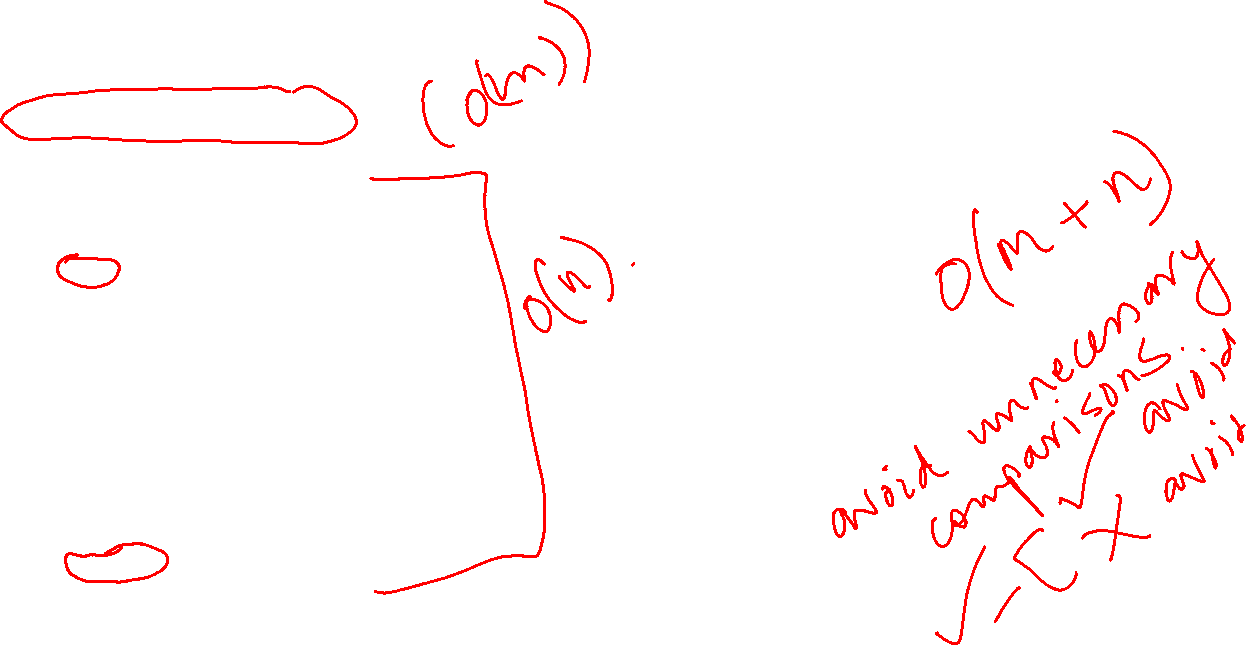 (O(m))
O(n).
O(m + n)
avoid unnecessary
comparisons.
avoid
avoid